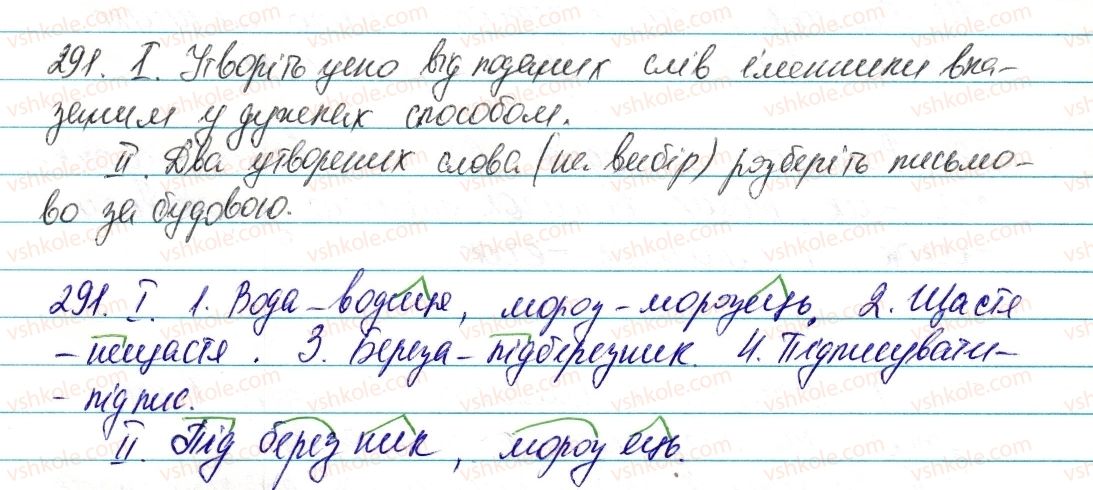 291. I. Утворіть усно від поданих слів іменники вка-
заним у дужках способом.
II. Два утворених слова (на вибір) розберіть письмо-
во за будовою.
291. I. 1. Вода – водиця, мороз – морозець. 2. Щастя
– нещастя. 3. Береза – підберезник. 4. Підписувати –
– підпис.
II. Підберезник, морозець.